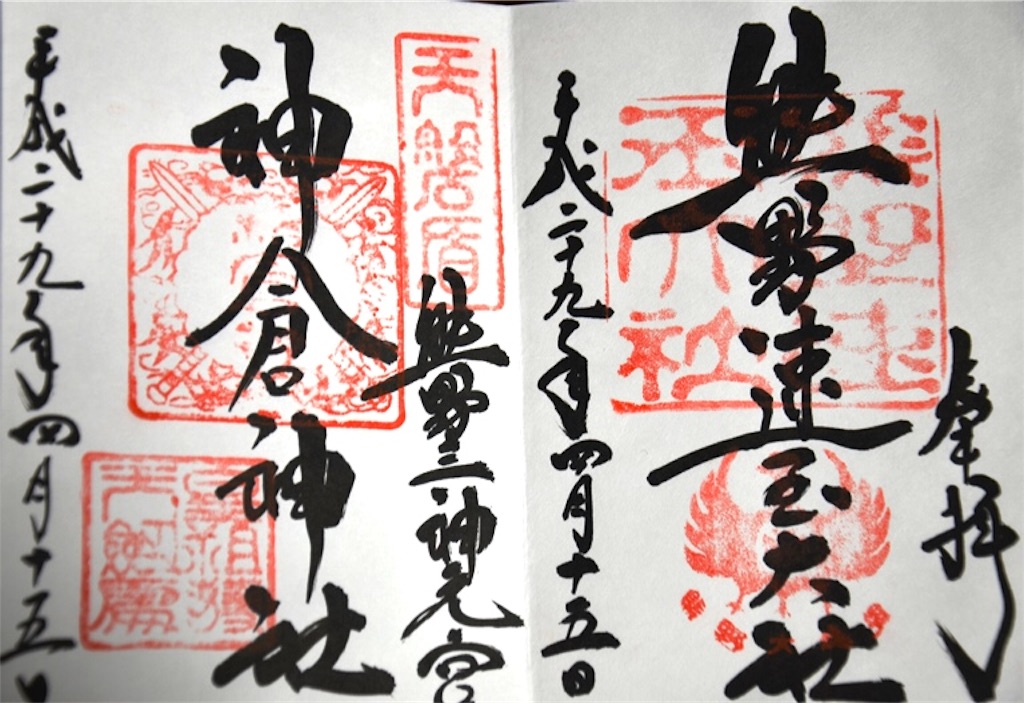 奉拝
熊野速玉大社
平成二十九年四月十五日
熊野三神元宮
神倉神社
平成二十九年四月十五日
天磐盾
熊野速玉大社